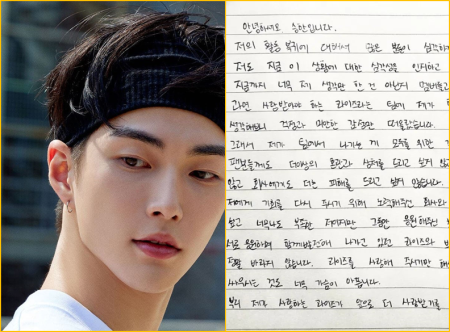 안녕하세요, 승한입니다.
저의 활동 복귀에 대해서 많은 분들이 심각하
저도 지금 이 상황에 대한 심각성을 인지하고
지금까지 너무 제 생각만 한 건 아닌지
과연 사랑받아야 하는 라이즈라는 팀에 제가
생각해보니 걱정과 미안한 감정만 떠올랐습니다.
그래서 제가 팀에서 나가는 게 모두를 위한
팬분들께도 더이상의 혼란과 상처를 드리고 싶지 않
않고 회사에게도 더는 피해를 드리고 싶지 않습니다.
저에게 기회를 다시 주시기 위해 노력해주신 회사
싶고 너무나도 부족한 저에게지만 그동안 응원해주신
서로 응원하며 함께 나아가고 있던 라이즈와
바라지 않습니다. 라이즈를 사랑해 주시기만 해
싸우시는 것도 너무 가슴이 아픕니다.
부디 제가 사랑하는 라이즈가 앞으로 더 사랑받기를